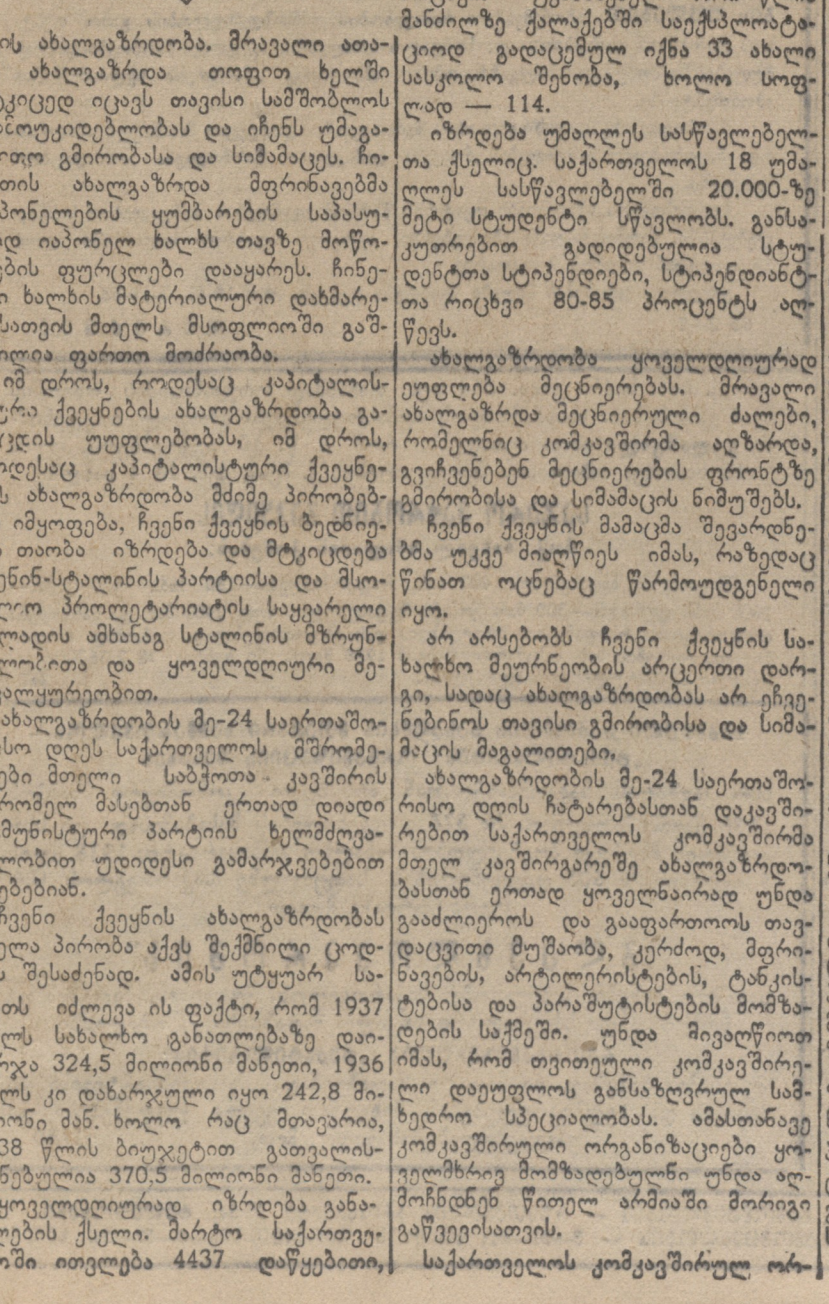 ახალგაზრდობა. მრავალი ათა-
ახალგაზრდა თოფით ხელში
იცავს თავისი სამშობლოს
და იჩენს უმაგა-
გმირობასა და სიმამაცეს. ჩი-
ახალგაზრდა მფრინავებმა
ყუმბარების საპასუ-
იაპონელ ხალხს თავზე მოწო-
ფურცლები დააყარეს. ჩინე-
ხალხის მატერიალური დახმარე-
მთელს მსოფლიოში გაშ-
ფართო მოძრაობა.
იმ დროს, როდესაც კაპიტალის-
ქვეყნების ახალგაზრდობა გა-
უუფლებობას, იმ დროს,
კაპიტალისტური ქვეყნე-
ახალგაზრდობა მძიმე პირობებ-
იმყოფება, ჩვენი ქვეყნის ბედნიე-
თაობა იზრდება და მტკიცდება
ენინ-სტალინის პარტიისა და მსო-
პროლეტარიატის საყვარელი
ამხანაგ სტალინის მზრუნ-
და ყოველდღიური მე-
ვალყურეობით.
ახალგაზრდობის მე-24 საერთაშო-
სო დღეს საქართველოს მშრომე-
ები მთელი საბჭოთა კავშირის
რომელ მასებთან ერთად დიადი
მუნისტური პარტიის ხელმძღვა-
ლობით უდიდესი გამარჯვებებით
ებებიან.
ჩვენი ქვეყნის ახალგაზრდობას
ელა პირობა აქვს შექმნილი ცოდ-
შესაძენად. ამის უტყუარ სა-
თს იძლევა ის ფაქტი, რომ 1937
ლს სახალხო განათლებაზე დაი-
რჯა 324,5 მილიონი მანეთი, 1936
ლს კი დახარჯული იყო 242,8 მი-
იონი მან. ხოლო რაც მთავარია,
38 წლის ბიუჯეტით გათვალის-
ნებულია 370,5 მილიონი მანეთი.
ყოველდღიურად იზრდება განა-
ლების ქსელი. მარტო საქართვე-
ოში ითვლება 4437 დაწყებითი,
მანძილზე ქალაქებში საექსპლოატა-
ციოდ გადაცემულ იქნა 33 ახალი
სასკოლო შენობა, ხოლო სოფ-
ლად — 114.
იზრდება უმაღლეს სასწავლებელ-
თა ქსელიც. საქართველოს 18 უმა-
ღლეს სასწავლებელში 20.000-ზე
მეტი სტუდენტი სწავლობს. განსა-
კუთრებით გადიდებულია სტუ-
დენტთა სტიპენდიები, სტიპენდიანტ-
თა რიცხვი 80-85 პროცენტს აღ-
წევს.
ახალგაზრდობა ყოველდღიურად
ეუფლება მეცნიერებას. მრავალი
ახალგაზრდა მეცნიერული ძალები,
რომელნიც კომკავშირმა აღზარდა,
გვიჩვენებენ მეცნიერების ფრონტზე
გმირობისა და სიმამაცის ნიმუშებს.
ჩვენი ქვეყნის მამაცმა შევარდნე-
ბმა უკვე მიაღწიეს იმას, რაზედაც
წინათ ოცნებაც წარმოუდგენელი
იყო.
არ არსებობს ჩვენი ქვეყნის სა-
ხალხო მეურნეობის არცერთი დარ-
გი, სადაც ახალგაზრდობას არ ეჩვე-
ნებინოს თავისი გმირობისა და სიმა-
მაცის მაგალითები.
ახალგაზრდობის მე-24 საერთაშო-
რისო დღის ჩატარებასთან დაკავში-
რებით საქართველოს კომკავშირმა
მთელ კავშირგარეშე ახალგაზრდო-
ბასთან ერთად ყოველნაირად უნდა
გააძლიეროს და გააფართოოს თავ-
დაცვითი მუშაობა, კერძოდ, მფრი-
ნავების, არტილერისტების, ტანკის-
ტებისა და პარაშუტისტების მომზა-
დების საქმეში. უნდა მივაღწიოთ
იმას, რომ თვითეული კომკავშირე-
ლი დაეუფლოს განსაზღვრულ სამ-
ხედრო სპეციალობას. ამასთანავე
კომკავშირული ორგანიზაციები ყო-
ველმხრივ მომზადებულნი უნდა აღ-
მოჩნდნენ წითელ არმიაში მორიგი
გაწვევისათვის.
საქართველოს კომკავშირულ ორ-